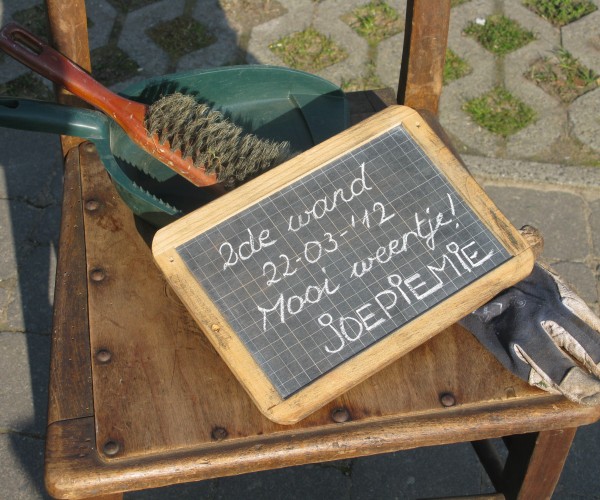 2de wand
22-03-'12
Mooi weertje!
JOEPIEMIE